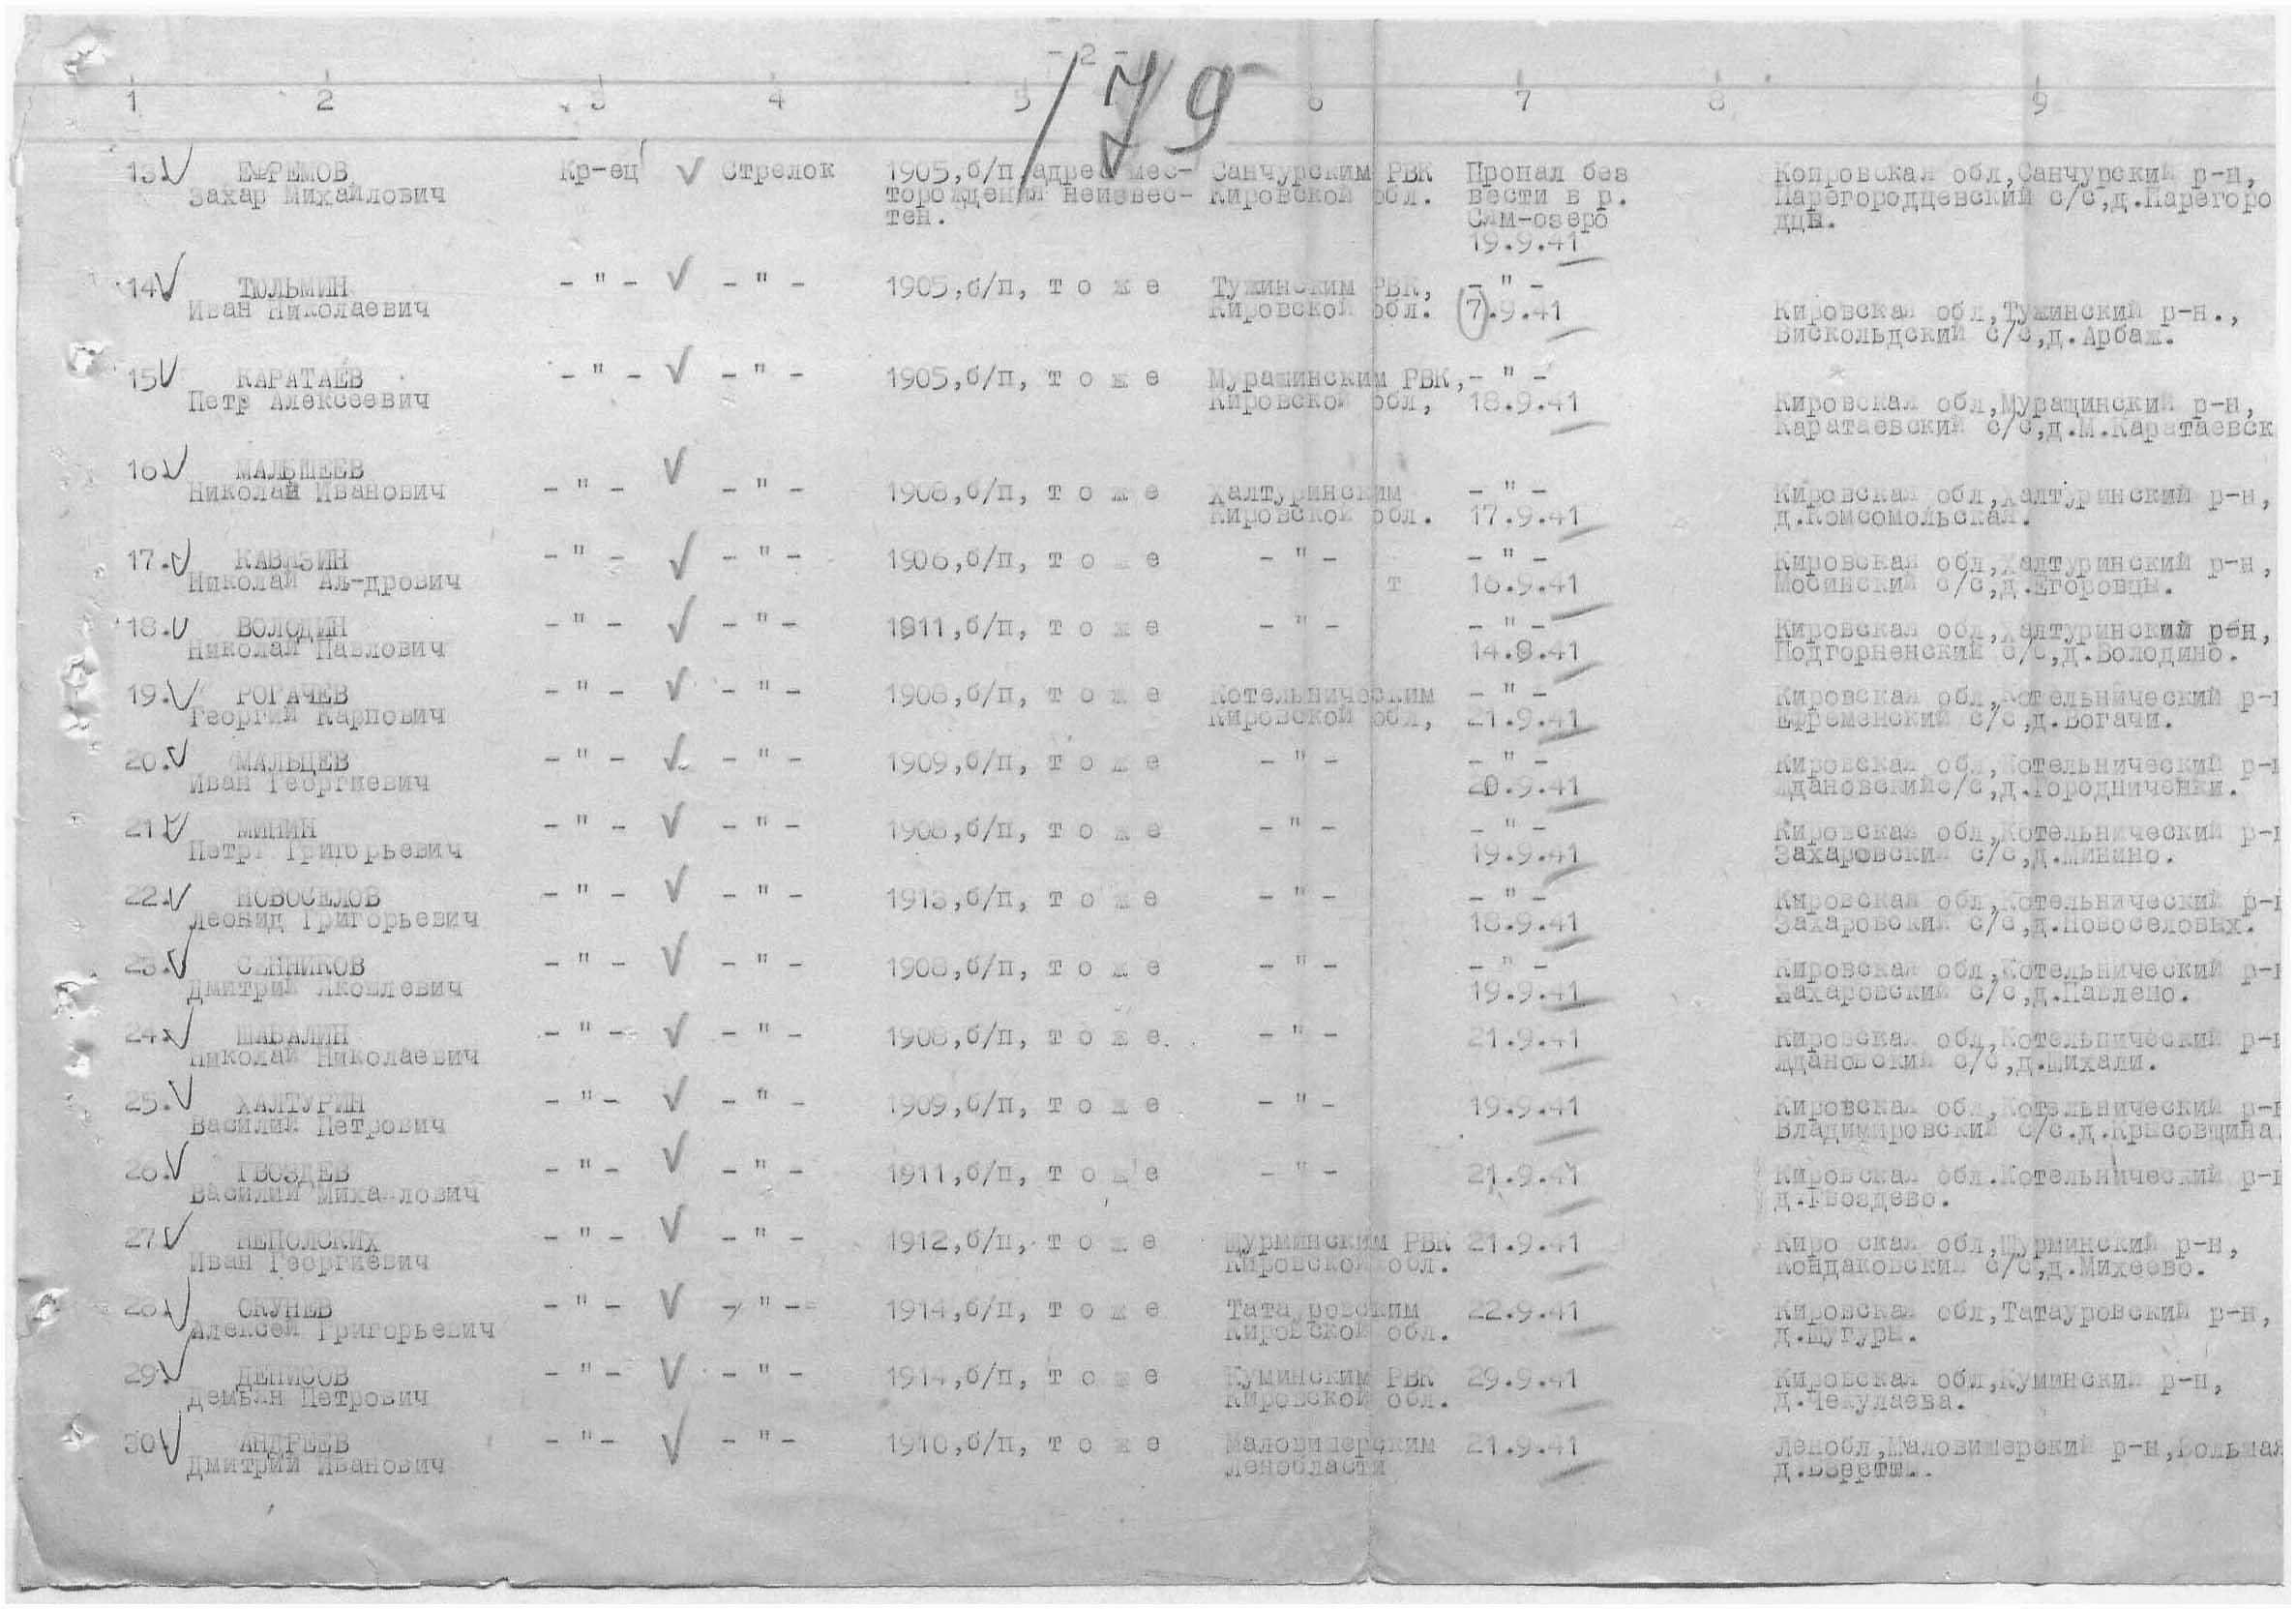 - 2 -
179
1 2 3 4 5 6 7 8 9
13. ЕФРЕМОВ Кр-ец Стрелок 1905,б/п,адрес мес- Санчурским РВК Пропал без Копровская обл,Санчурский р-н,
Захар Михайлович торождения неизвес- Кировской обл. вести в р. Парегородцевский с/с,д.Парегоро
тен. Сям-озеро дцы.
19.9.41
14. ТЮЛЬМИН - " - - " - 1905,б/п, т о ж е Тужинским РВК, - " -
Иван Николаевич Кировской обл. 7.9.41 Кировская обл,Тужинский р-н.,
Вискольдский с/с,д.Арбаж.
15. КАРАТАЕВ - " - - " - 1905,б/п, т о ж е Мурашинским РВК, - " -
Петр Алексеевич Кировской обл, 18.9.41 Кировская обл,Мурашинский р-н,
Каратаевский с/с,д.М.Каратаевск
16. МАЛЫШЕЕВ
Николай Иванович - " - - " - 1908,б/п, т о ж е Халтуринским - " - Кировская обл,Халтуринский р-н,
Кировской обл. 17.9.41 д.Комсомольская.
17. КАВЯЗИН - " - - " - 1906,б/п, т о ж е - " - - " - Кировская обл,Халтуринский р-н,
Николай Ал-дрович т 16.9.41 Мосинский с/с,д.Егоровцы.
18. ВОЛОДИН - " - - " - 1911,б/п, т о ж е - " - - " - Кировская обл,Халтуринский рбн,
Николай Павлович 14.9.41 Подгорненский с/с,д.Володино.
19. РОГАЧЕВ - " - - " - 1908,б/п, т о ж е Котельническим - " - Кировская обл,Котельнический р-н
Георгий Карпович Кировской обл, 21.9.41 Ефременский с/с,д.Богачи.
20. МАЛЬЦЕВ - " - - " - 1909,б/п, т о ж е - " - - " - Кировская обл,Котельнический р-н
Иван Георгиевич 20.9.41 Ждановскийс/с,д.Городниченки.
21. МИНИН - " - - " - 1908,б/п, т о ж е - " - - " - Кировская обл,Котельнический р-н
Петр Григорьевич 19.9.41 Захаровский с/с,д.Минино.
22. НОВОСЕЛОВ - " - - " - 1913,б/п, т о ж е - " - - " - Кировская обл,Котельнический р-н
Леонид Григорьевич 18.9.41 Захаровский с/с,д.Новоселовых.
23. СЕННИКОВ - " - - " - 1908,б/п, т о ж е - " - - " - Кировская обл,Котельнический р-н
Дмитрий Яковлевич 19.9.41 Захаровский с/с,д.Павлено.
24. ШАБАЛИН - " - - " - 1908,б/п, т о ж е. - " - 21.9.41 Кировская обл,Котельнический р-н
Николай Николаевич Ждановский с/с,д.Шихали.
25. ХАЛТУРИН - " - - " - 1909,б/п, т о ж е - " - 19.9.41 Кировская обл,Котельнический р-н
Василий Петрович Владимировский с/с.д.Крысовщина.
26. ГВОЗДЕВ - " - - " - 1911,б/п, т о ж е - " - 21.9.41 Кировская обл.Котельнический р-н
Василий Миха лович д.Гвоздево.
27. НЕПОЛСКИХ - " - - " - 1912,б/п, т о ж е Шурминским РВК 21.9.41 Киро ская обл,Шурминский р-н,
Иван Георгиевич Кировской обл. Кондаковский с/с,д.Михеево.
28. ОКУНЕВ - " - - " - 1914,б/п, т о ж е Татауровским 22.9.41 Кировская обл,Татауровский р-н,
Алексей Григорьевич Кировской обл. д.Шугуры.
29. ДЕНИСОВ - " - - " - 1914,б/п, т о ж е Куминским РВК 29.9.41 Кировская обл,Куминский р-н,
Демьян Петрович Кировской обл. д.Чекулаева.
30. АНДРЕЕВ - " - - " - 1910,б/п, т о ж е Маловишерским 21.9.41 Ленобл,Маловишерский р-н,Большая
Дмитрий Иванович Ленобласти д.